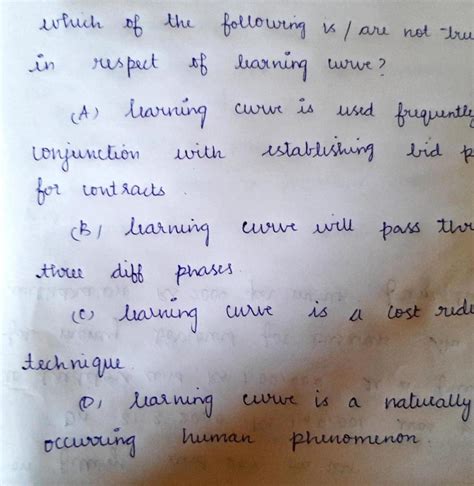 which of the following is / are not tru
in respect of learning curve?
(A) learning curve is used frequently
conjunction with establishing bid p
for contracts.
(B) learning curve will pass thr
three diff phases.
(C) learning curve is a cost redu
technique.
(D) learning curve is a naturally
occurring human phenomenon.